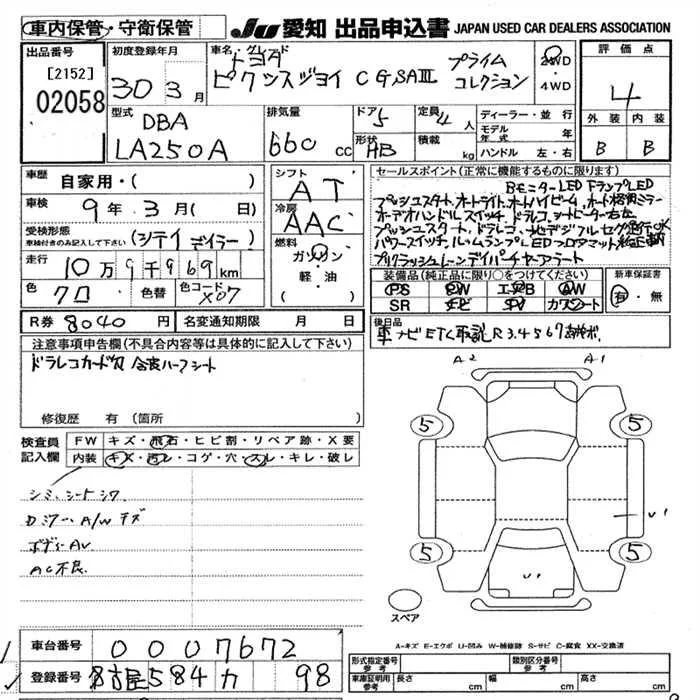 車内保管・守衛保管
JU 愛知 出品申込書 JAPAN USED CAR DEALERS ASSOCIATION
出品番号
[2152]
02058
初度登録年月
30年3月
車名・グレード
トヨタ
ピクシスジョイ C G,SAⅢ プライム
コレクション
2WD
・
4WD
評価点
4
外装 内装
B B
型式
DBA
LA250A
排気量
660 cc
ドア
5
形状
HB
定員
4人
積載
kg
ディーラー・並行
モデル年式 年
ハンドル 左・右
車歴
自家用・( )
車検
9年3月( )日
受検形態
車検付きのみ記入して下さい
(シティ デイラー)
走行
10万9千969km
色
クロ
色替
色コード
X07
シフト
AT
冷房
AAC
燃料
ガソリン
・
軽・油
( )
セールスポイント(正常に機能するものに限ります)
BモニターLED FランプLED
プッシュスタート,オートライト,オートハイビーム,オート格納ミラー
オーデオハンドルスイッチ,ドラレコ,シートヒーター右左
装備品(純正品に限り○をつけてください)
PS PW エアB AW
SR ナビ TV カワシート
新車保証書
有・無
R券 8040円
名変通知期限 月 日
後日品
注意事項申告欄(不具合内容等は具体的に記入して下さい)
修復歴 有(箇所
検査員
記入欄
FW キズ・飛石・ヒビ割・リペア跡・X要
内装 キズ・汚レ・コゲ・穴・スレ・キレ・破レ
シミ,シートシワ
Dミラー A/W キズ
ボディAU
AC不良
A2 A1
5 5
5 5
U1
U1
スペア
A-キズ E-エクボ U-凹み W-補修跡 S-サビ C-腐食 XX-交換済
車台番号 0007672
登録番号 名古屋 584 カ 98
形式指定番号
参考
類別区分番号
参考
車庫証明用
参考
長さ cm
幅 cm
高さ cm